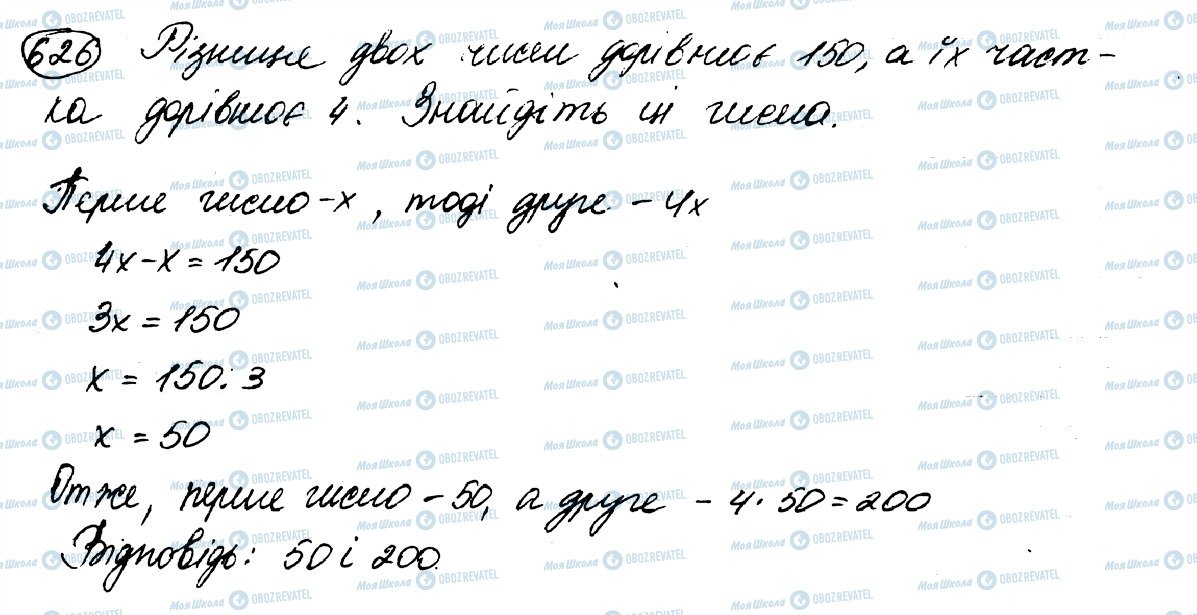 626 Різниця двох чисел дорівнює 150, а їх част-
ка дорівнює 4. Знайдіть ці числа.
Перше число - х, тоді друге - 4х
4х-х = 150
3х = 150
х = 150:3
х = 50
Отже, перше число - 50, а друге - 4·50=200
Відповідь: 50 і 200.